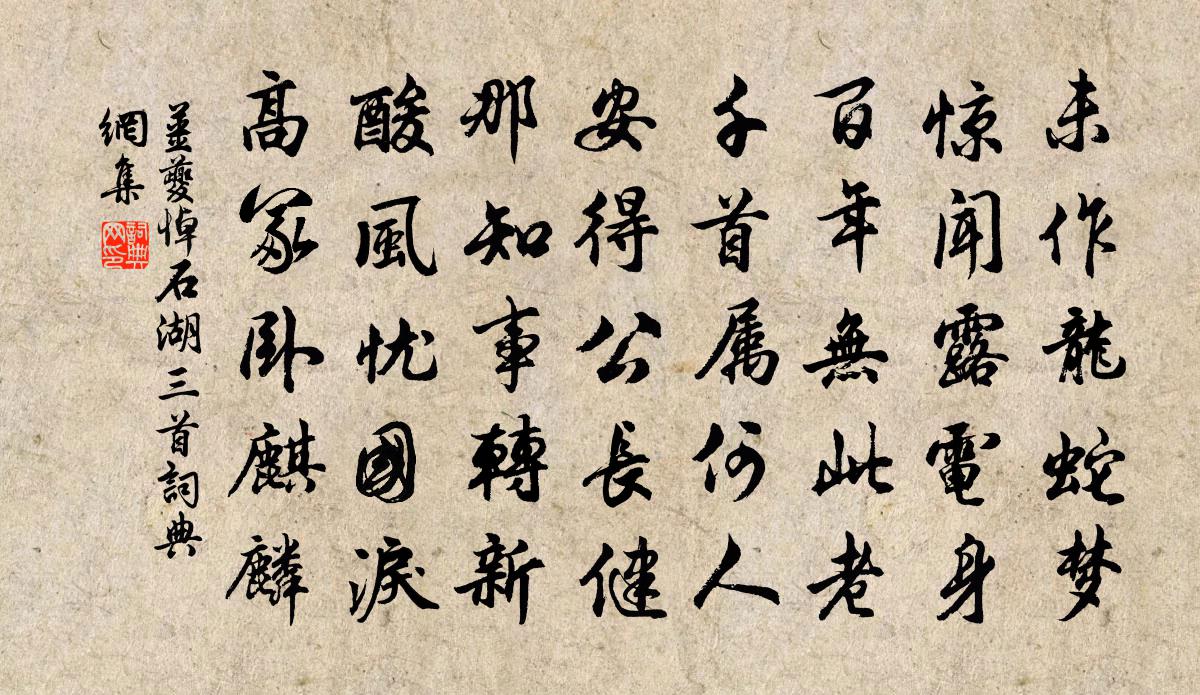 未作龍蛇梦
惊聞露電身
百年無此老
千首属何人
安得公長健
那知事轉新
酸風忧國淚
高冢卧麒麟
薑夔悼石湖三首詞典
網集
詞典
网印